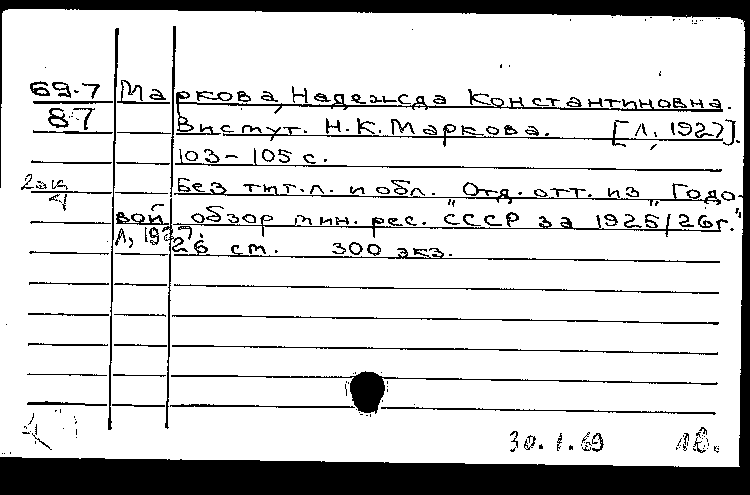 69-7 Маркова, Надежда Константиновна.
87 Висмут. Н.К. Маркова. [Л, 1927].
103-105 с.
2 экз Без тит.л. и обл. Отд. отт. из „Годо-
вой обзор мин. рес. СССР за 1925/26г."
Л, 1927.
26 см. 300 экз.
30.1.69 18.